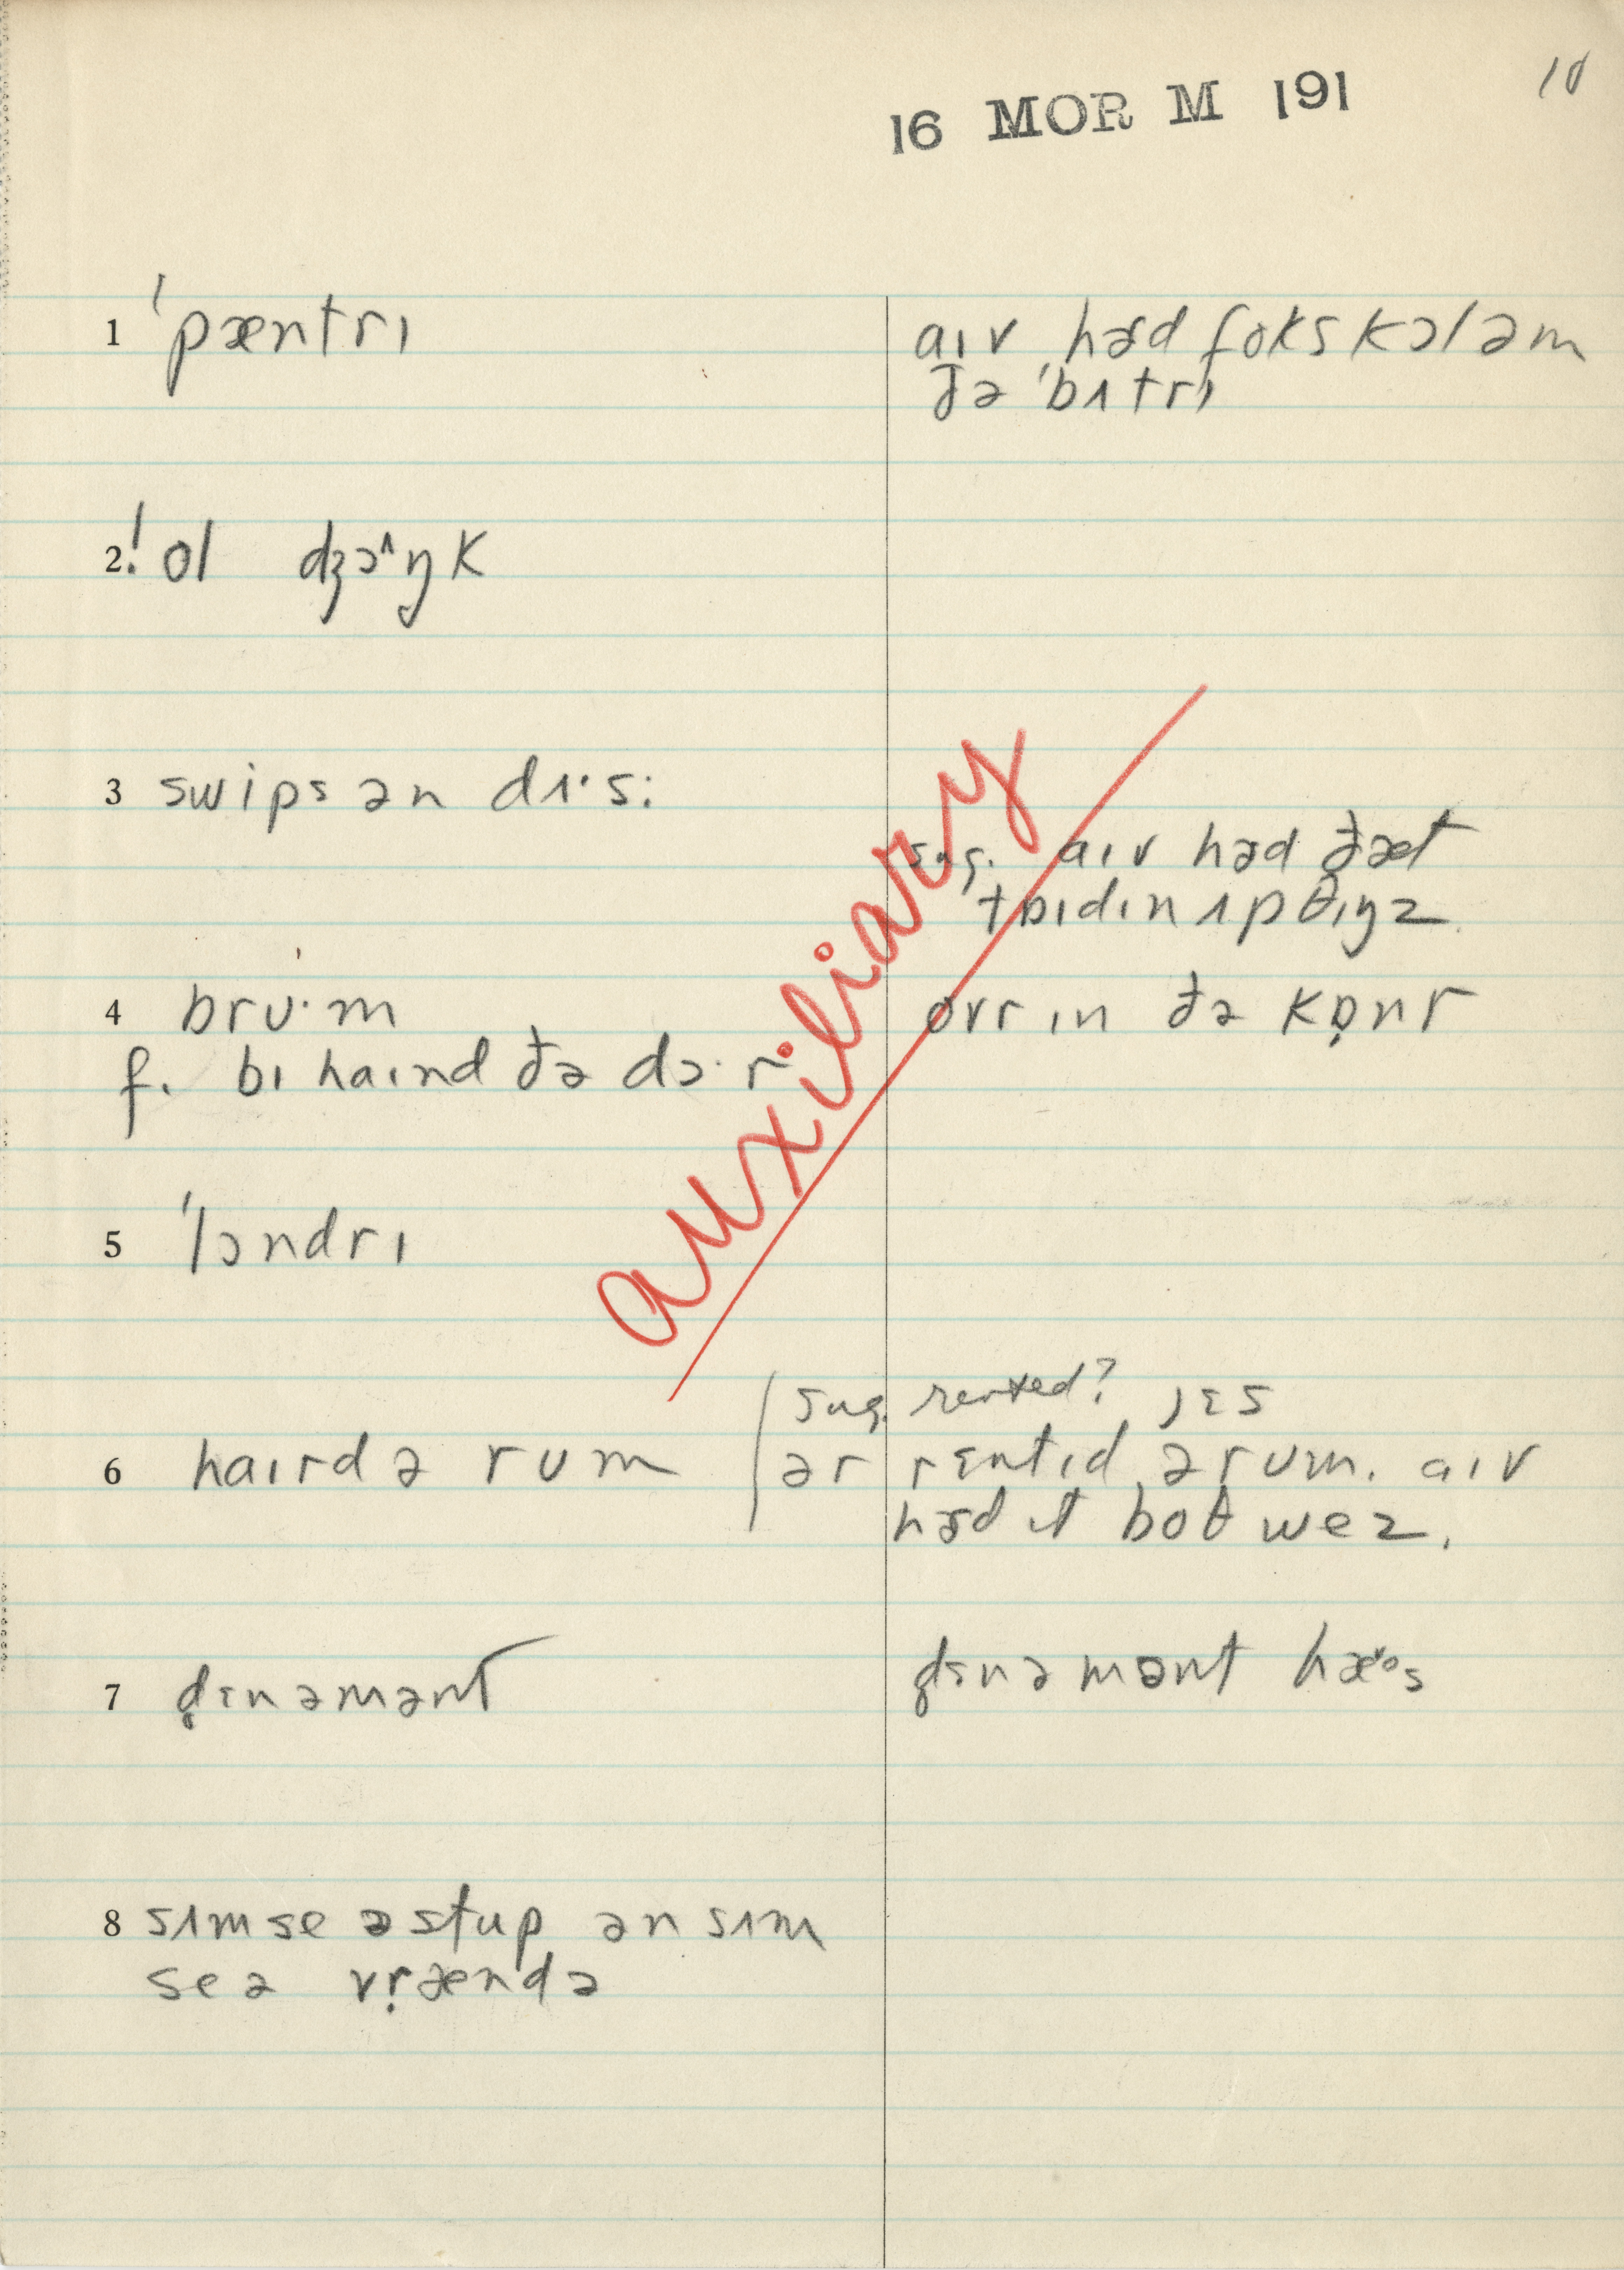 10
16 MOR M 191
1 ˈpæntrɪ
aɪv hɜd foks kɔləm
ðə ˈbʌtrɪ
2 ! ol dʒɔ^ŋk
3 swips ən dʌ·s:
sug. aɪv hɜd ðæt
tɒɪdɪn ʌp θɪŋz.
4 brʊ·m
ovr ɪn ðə kɒ̣nr
f. bɪ haɪnd ðə dɔ·r
auxiliary
5 ˈlɔndrɪ
6 haɪrd ə rum
sug. rented? jɛs
ər rɛntɪd ə rum. aɪv
hɜd ɪt boθ wez.
7 ḍɛnəmənt
ḍɛnəmənt hæᵛᵒs
8 sʌm se ə stup ən sʌm
se ə vṛændə